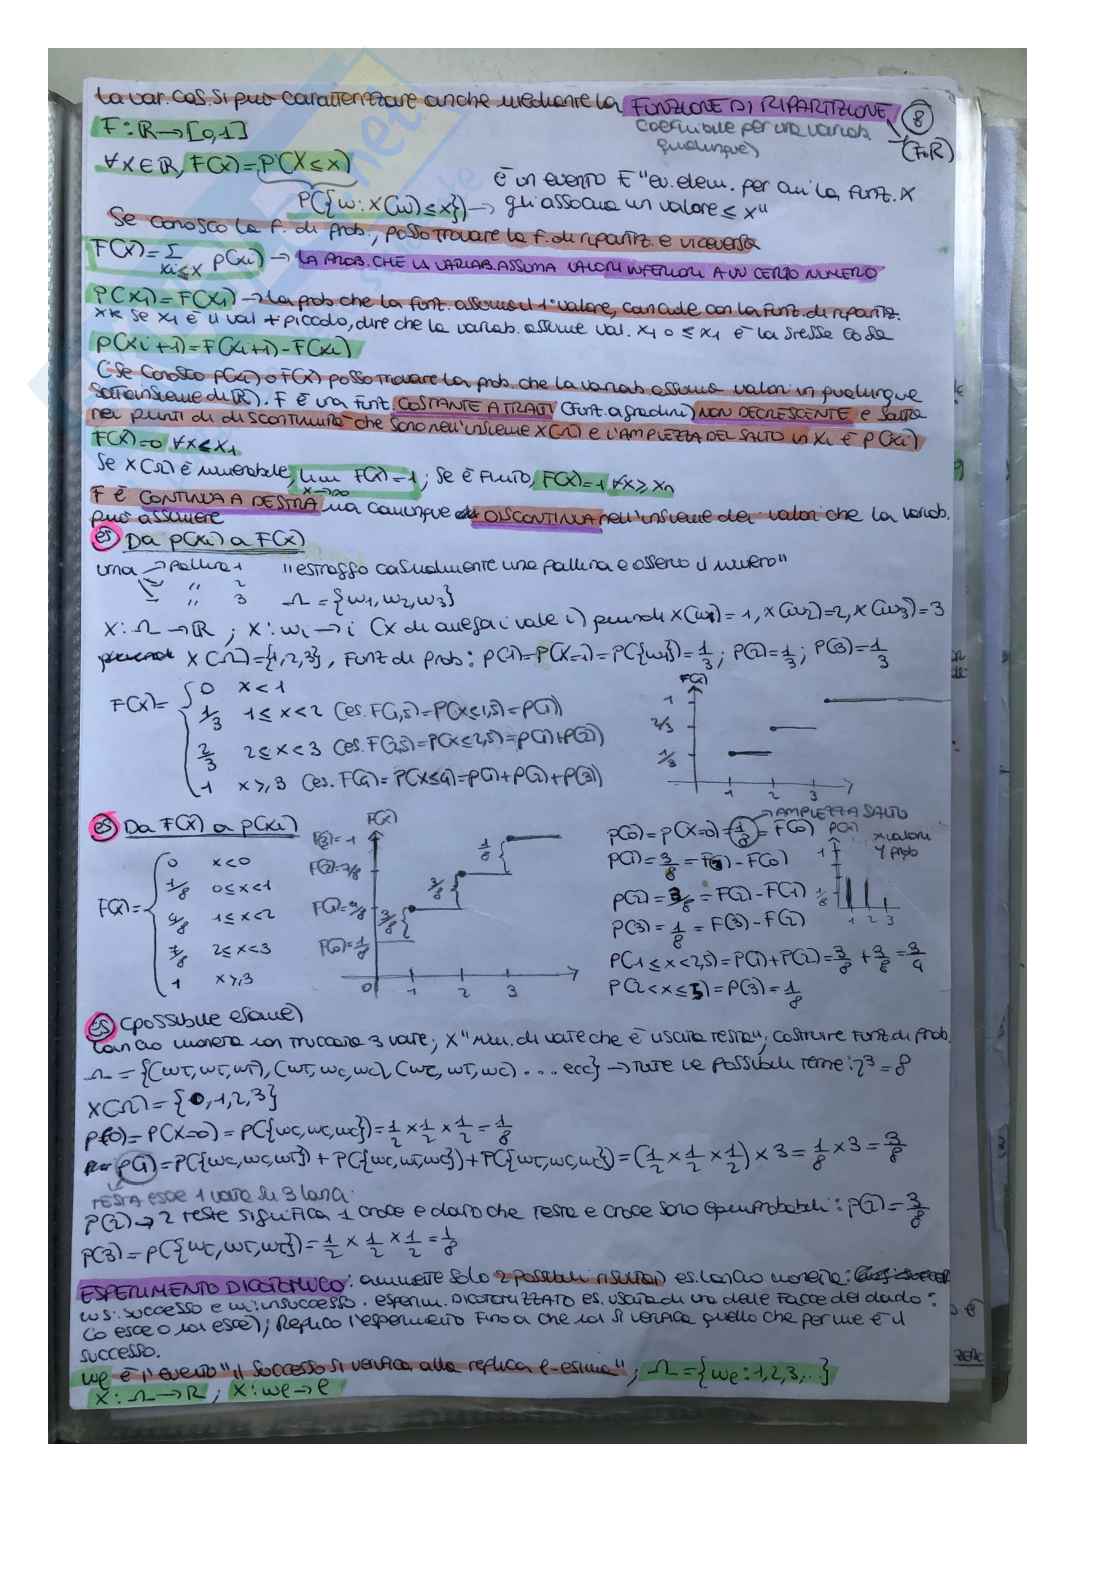 La var. cas. si può caratterizzare anche mediante la FUNZIONE DI RIPARTIZIONE (FdR) 8
F: ℝ → [0,1] (definibile per una variab. qualunque)
∀x∈ℝ, F(x) = P(X ≤ x) è un evento E "ev. elem. per cui la funz. X
P({ω: X(ω) ≤ x}) → gli associa un valore ≤ x"
Se conosco la f. di prob., posso trovare la f. di ripartiz. e viceversa
F(x) = Σ xi≤x p(xi) → LA PROB. CHE LA VARIAB. ASSUMA VALORI INFERIORI A UN CERTO NUMERO
P(x1) = F(x1) → la prob che la funz. assuma il 1° valore, coincide con la funz. di ripartiz.
xk se x1 è il val + piccolo, dire che la variab. assume val. x1 o ≤ x1 è la stessa cosa
p(xi+1) = F(xi+1) - F(xi)
(Se conosco p(xi) o F(x) posso trovare la prob. che la variab. assuma valori in qualunque
sottoinsieme di ℝ). F è una funz. COSTANTE A TRATTI (funz. a gradini) NON DECRESCENTE e salta
nei punti di discontinuità che sono nell'insieme X(Ω) e l'AMPIEZZA DEL SALTO in xi è p(xi)
F(x)=0 ∀x<x1
Se X(Ω) è numerabile, lim x→∞ F(x)=1; se è finito, F(x)=1 ∀x ≥ xn
F è CONTINUA A DESTRA ma comunque DISCONTINUA nell'insieme dei valori che la variab.
può assumere
es Da p(xi) a F(x)
urna → pallina 1 "estraggo casualmente una pallina e osservo il numero"
→ " 2
→ " 3 Ω = {ω1, ω2, ω3}
X: Ω → ℝ ; X: ωi → i (X di omega i vale i) quindi X(ω1)=1, X(ω2)=2, X(ω3)=3
X(Ω)={1,2,3}, funz di prob: p(1)=P(X=1)=P({ω1})=1/3; p(2)=1/3; p(3)=1/3
F(x)= { 0 x<1
1/3 1≤x<2 (es. F(1,5)=P(X≤1,5)=p(1))
2/3 2≤x<3 (es. F(2,5)=P(X≤2,5)=p(1)+p(2))
1 x≥3 (es. F(4)=P(X≤4)=p(1)+p(2)+p(3))
F(x) 1 2/3 1/3 1 2 3
es Da F(x) a p(xi)
F(x)= { 0 x<0
1/8 0≤x<1
4/8 1≤x<2
7/8 2≤x<3
1 x≥3
F(x)
F(3)=1 1/8
F(2)=7/8 3/8
F(1)=4/8 3/8
F(0)=1/8
0 1 2 3
→ AMPIEZZA SALTO
p(0)=p(X=0)=1/8=F(0)
p(1)=3/8=F(1)-F(0)
p(2)=3/8=F(2)-F(1)
p(3)=1/8=F(3)-F(2)
P(1≤x<2,5)=p(1)+p(2)=3/8+3/8=3/4
P(2<x≤3)=p(3)=1/8
p(x) x valori
y prob
1 1/8 1 2 3
es (possibile esame)
Lancio moneta non truccata 3 volte; X "num. di volte che è uscita testa"; costruire funz di prob.
Ω={(ωT,ωT,ωT), (ωT,ωC,ωC), (ωC,ωT,ωC)....ecc} → tutte le possibili terne: 2³=8
X(Ω)={0,1,2,3}
p(0)=P(X=0)=P({ωC,ωC,ωC})=1/2×1/2×1/2=1/8
p(1)=P({ωC,ωC,ωT})+P({ωC,ωT,ωC})+P({ωT,ωC,ωC})=(1/2×1/2×1/2)×3=1/8×3=3/8
TESTA esce 1 volta su 3 lanci
p(2) → 2 teste significa 1 croce e dato che testa e croce sono equiprobabili: p(2)=3/8
p(3)=P({ωT,ωT,ωT})=1/2×1/2×1/2=1/8
ESPERIMENTO DICOTOMICO: ammette solo 2 possibili risultati es. lancio moneta:
ωs: successo e ωi: insuccesso. esperim. DICOTOMIZZATO es. uscita di una delle facce del dado:
(o esce o non esce); Replico l'esperimento fino a che non si verifica quello che per me è il
successo.
ωe è l'evento "il successo si verifica alla replica e-esima"; Ω={ωe: 1,2,3,...}
X: Ω → ℝ ; X: ωe → e